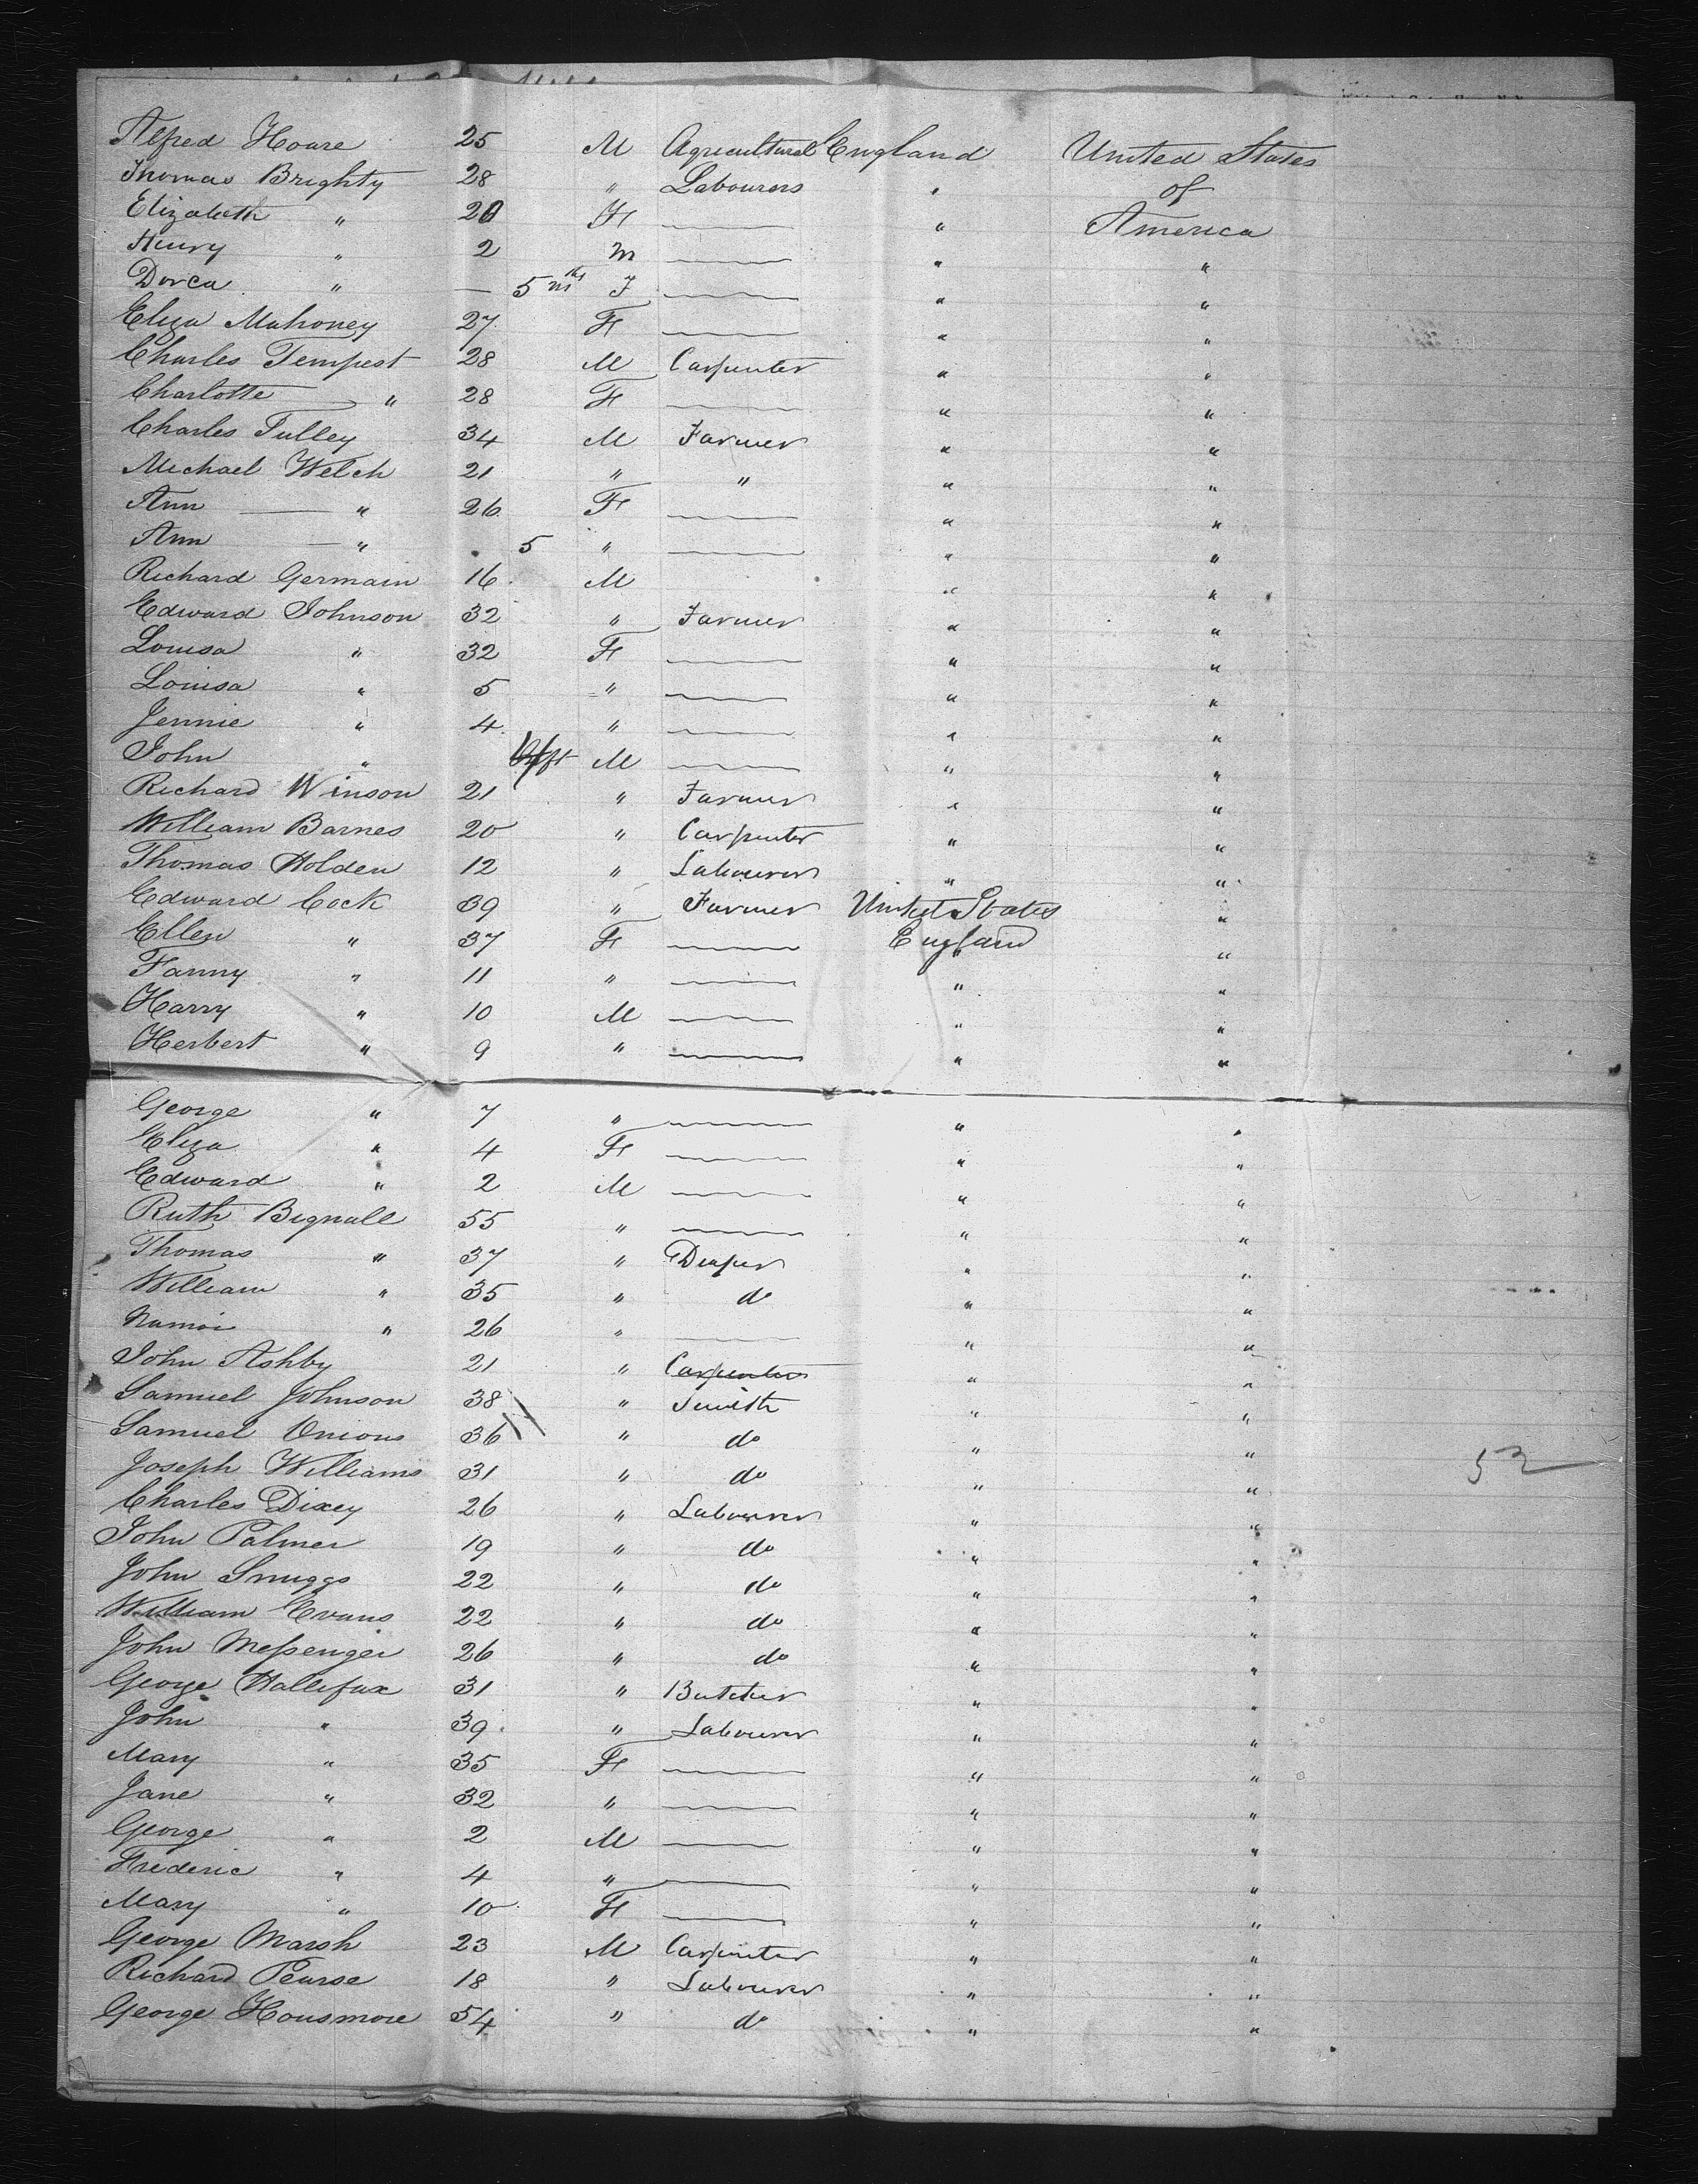 Alfred Hoare 25 M Agricultural England United States
Thomas Brighty 28 " Labourers " of
Elizabeth " 20 F — " America
Henry " 2 M — " "
Dorca " — 5 mths F — " "
Eliza Mahoney 27 F — " "
Charles Tempest 28 M Carpenter " "
Charlotte " 28 F — " "
Charles Tulley 34 M Farmer " "
Michael Welch 21 " " " "
Ann — " 26 F — " "
Ann — " 5 " — " "
Richard Germain 16 M " "
Edward Johnson 32 " Farmer " "
Louisa " 32 F — " "
Louisa " 5 " — " "
Jennie " 4 " — " "
John " M — " "
Richard Winson 21 " Farmer " "
William Barnes 20 " Carpenter " "
Thomas Holden 12 " Labourer " "
Edward Cock 39 " Farmer United States "
Ellen " 37 F — England "
Fanny " 11 " — " "
Harry " 10 M — " "
Herbert " 9 " — " "
George " 7 " — " "
Eliza " 4 F — " "
Edward " 2 M — " "
Ruth Bignall 55 " — " "
Thomas " 37 " Draper " "
William " 35 " do " "
Namoi " 26 " — " "
John Ashby 21 " Carpenter " "
Samuel Johnson 38 " Smith " "
Samuel Onions 36 " do " "
Joseph Williams 31 " do " "
52
Charles Dixey 26 " Labourer " "
John Palmer 19 " do " "
John Snuggs 22 " do " "
William Evans 22 " do " "
John Messenger 26 " do " "
George Hallifax 31 " Butcher " "
John " 39 " Labourer " "
Mary " 35 F — " "
Jane " 32 " — " "
George " 2 M — " "
Frederic " 4 " — " "
Mary " 10 F — " "
George Marsh 23 M Carpenter " "
Richard Pearse 18 " Labourer " "
George Housmore 54 " do " "